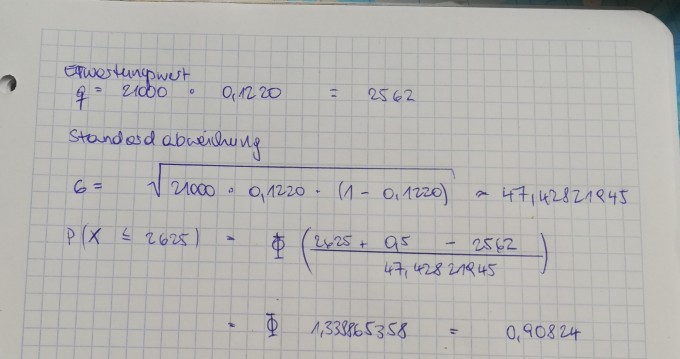 Erwartungswert
q = 21000 • 0,1220 = 2562
Standardabweichung
6 = √21000 • 0,1220 · (1 - 0,1220) ≈ 47,42821945
P(X ≤ 2625) = Φ (2625 + 0,5 - 2562 / 47,42821945)
= Φ 1,338865358 = 0,90824